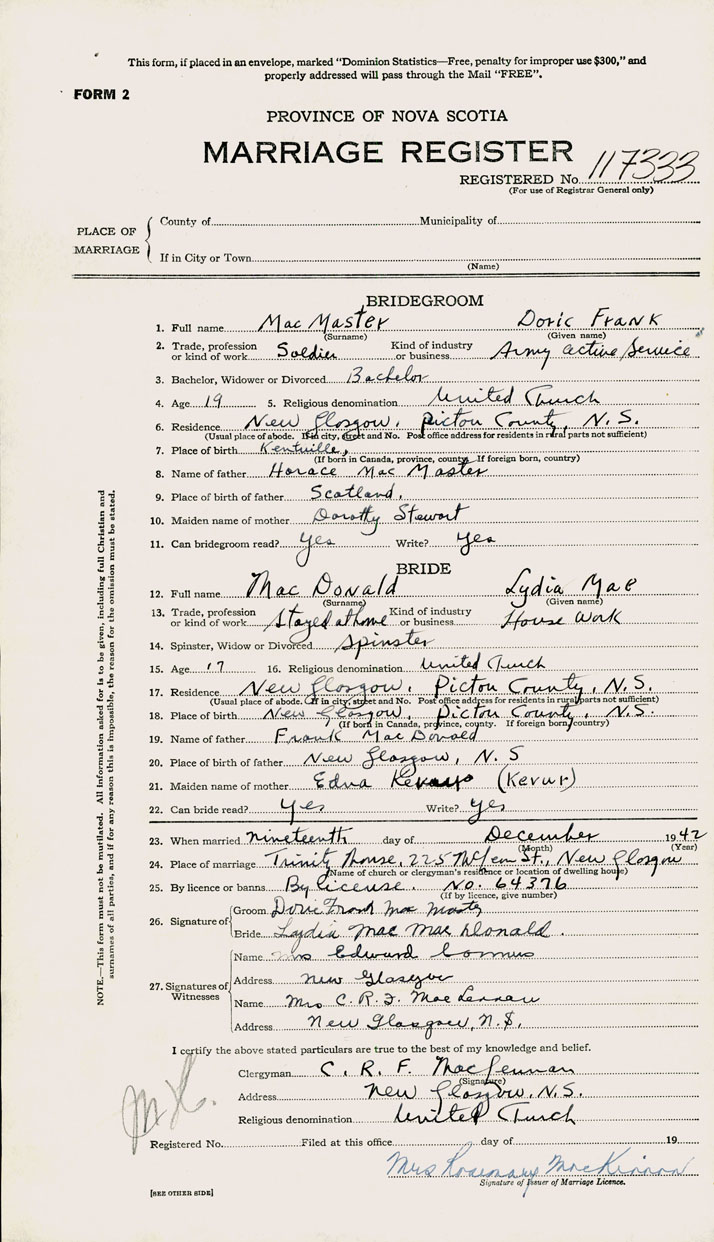 This form, if placed in an envelope, marked "Dominion Statistics—Free, penalty for improper use $300," and
properly addressed will pass through the Mail "FREE".
FORM 2
PROVINCE OF NOVA SCOTIA
MARRIAGE REGISTER
REGISTERED No. 117333
(For use of Registrar General only)
PLACE OF MARRIAGE
County of Municipality of
If in City or Town
(Name)
BRIDEGROOM
1. Full name Mac Master Doric Frank
(Surname) (Given name)
2. Trade, profession or kind of work Soldier Kind of industry or business Army active Service
3. Bachelor, Widower or Divorced Bachelor
4. Age 19 5. Religious denomination United Church
6. Residence New Glasgow, Pictou County, N.S.
(Usual place of abode. If in city, street and No. Post office address for residents in rural parts not sufficient)
7. Place of birth Kentville,
(If born in Canada, province, county. If foreign born, country)
8. Name of father Horace Mac Master
9. Place of birth of father Scotland.
10. Maiden name of mother Dorothy Stewart
11. Can bridegroom read? yes Write? yes
BRIDE
12. Full name Mac Donald Lydia Mae
(Surname) (Given name)
13. Trade, profession or kind of work Stayed at home Kind of industry or business House work
14. Spinster, Widow or Divorced Spinster
15. Age 17 16. Religious denomination United Church
17. Residence New Glasgow, Pictou County, N.S.
(Usual place of abode. If in city, street and No. Post office address for residents in rural parts not sufficient)
18. Place of birth New Glasgow, Pictou County, N.S.
(If born in Canada, province, county. If foreign born, country)
19. Name of father Frank Mac Donald
20. Place of birth of father New Glasgow, N.S
21. Maiden name of mother Edna (Kevur)
22. Can bride read? yes Write? yes
23. When married nineteenth day of December 1942
(Month) (Year)
24. Place of marriage Trinity Manse, 225 St., New Glasgow
(Name of church or clergyman's residence or location of dwelling house)
25. By licence or banns By license. No. 64376
(If by licence, give number)
26. Signature of
Groom Doric Frank Mac Master
Bride Lydia Mae Mac Donald.
27. Signatures of Witnesses
Name Mrs Edward
Address New Glasgow
Name Mrs C. R. F. MacLennan
Address New Glasgow, N.S.
I certify the above stated particulars are true to the best of my knowledge and belief.
Clergyman C. R. F. MacLennan
(Signature)
Address New Glasgow, N.S.
Religious denomination United Church
Registered No. Filed at this office day of 19
Mrs Rosemary MacKinnon
Signature of Issuer of Marriage Licence.
[SEE OTHER SIDE]
NOTE.—This form must not be mutilated. All information asked for is to be given, including full Christian and
surnames of all parties, and if for any reason this is impossible, the reason for the omission must be stated.